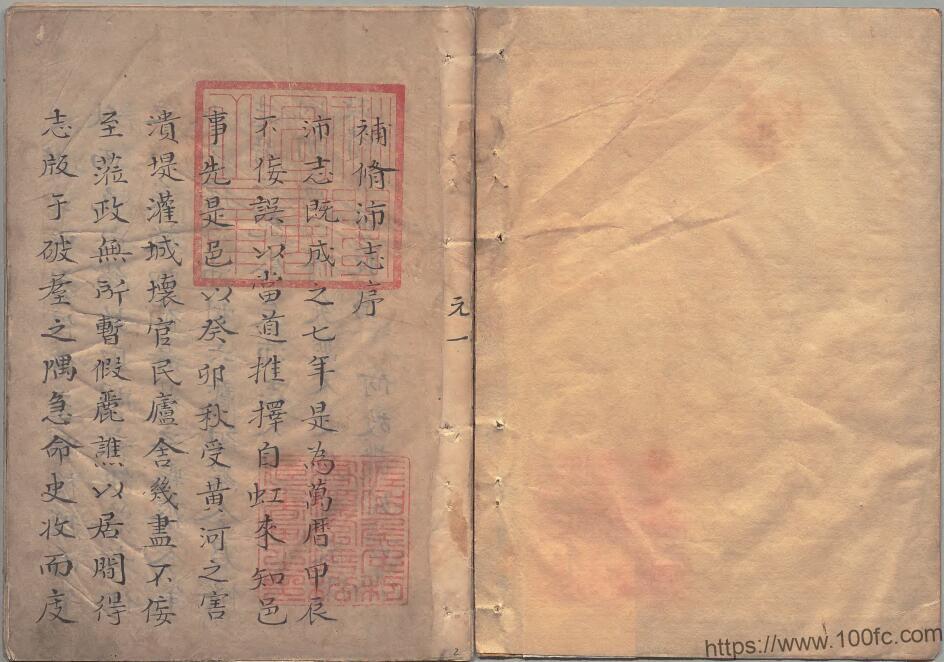 補脩沛志序
沛志既成之七年是為萬曆甲辰
不佞誤以當道推擇自虹來知邑
事先是邑以癸卯秋受黃河之害
潰堤灌城壞官民廬舍幾盡不佞
至蒞政無所暫假麗譙以居間得
志版于破屋之隅急命史收而庋
元一
2
https://www.100fc.com